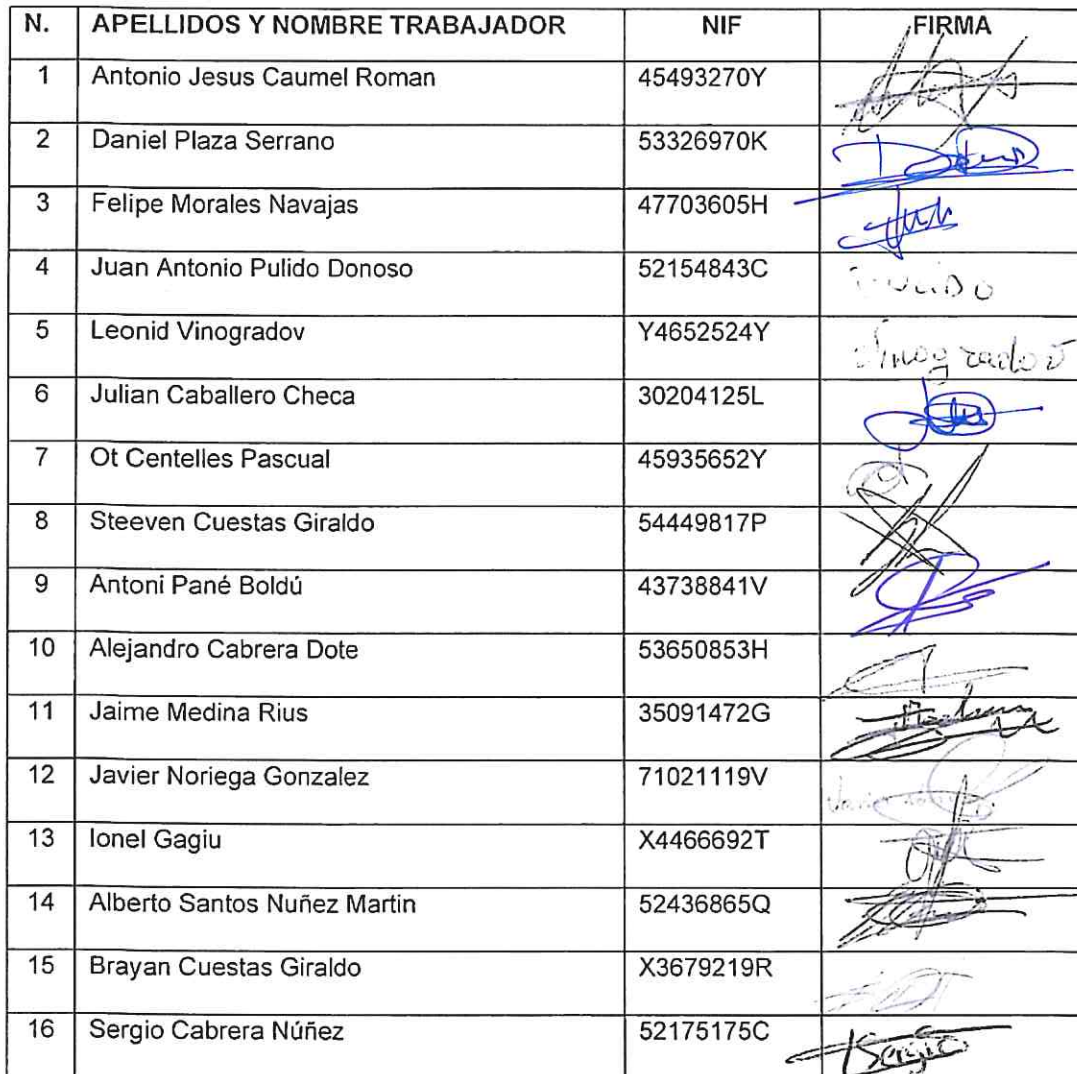 N. APELLIDOS Y NOMBRE TRABAJADOR NIF FIRMA
1 Antonio Jesus Caumel Roman 45493270Y
2 Daniel Plaza Serrano 53326970K
3 Felipe Morales Navajas 47703605H
4 Juan Antonio Pulido Donoso 52154843C
5 Leonid Vinogradov Y4652524Y
6 Julian Caballero Checa 30204125L
7 Ot Centelles Pascual 45935652Y
8 Steeven Cuestas Giraldo 54449817P
9 Antoni Pané Boldú 43738841V
10 Alejandro Cabrera Dote 53650853H
11 Jaime Medina Rius 35091472G
12 Javier Noriega Gonzalez 71021119V
13 Ionel Gagiu X4466692T
14 Alberto Santos Nuñez Martin 52436865Q
15 Brayan Cuestas Giraldo X3679219R
16 Sergio Cabrera Núñez 52175175C Sergio